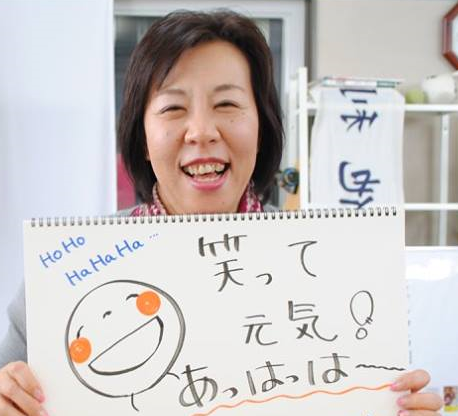 HoHo
HaHaHa…
笑って
元気!
あっはっは〜